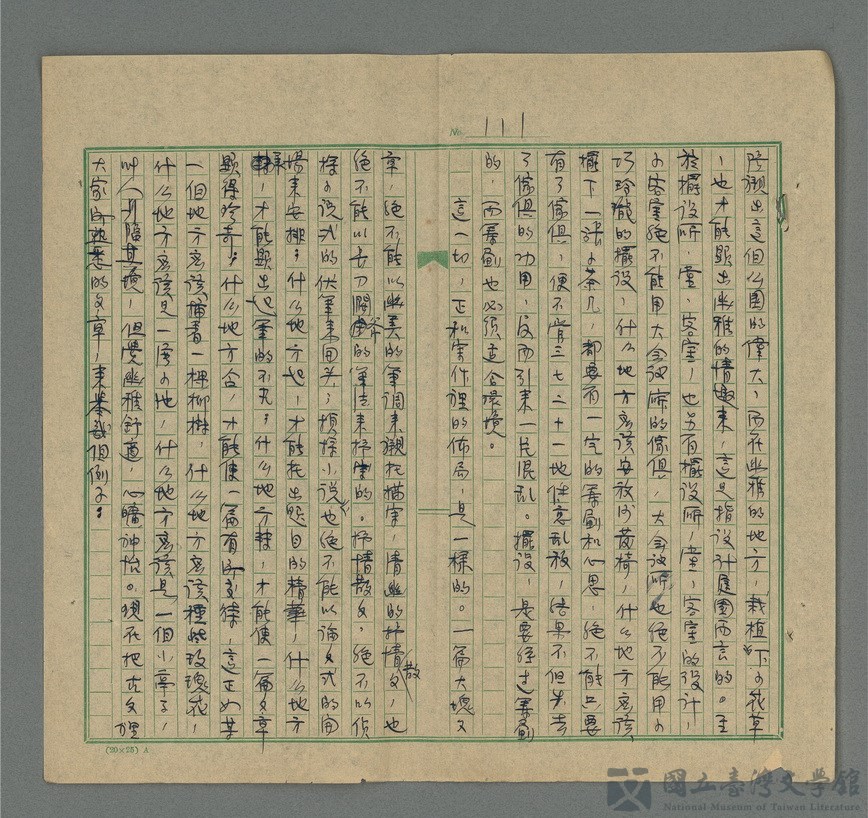 No. 111
陪襯出這個公園的偉大，而在幽雅的地方，栽植下的花草
，也才能顯出幽雅的情趣來，這是指設計庭園而言的。至
於擺設所，堂，客室，也另有擺設所，堂，客室的設計，
的客室絕不能用大會議所的傢俱，大會議所也絕不能用小
巧玲瓏的擺設，什么地方應該安放沙發椅，什么地方應該
擺下一張小茶几，都要有一定的籌劃和心思，絕不能只要
有了傢俱，便不管三七二十一地任意乱放，結果不但失去
了傢俱的功用，反而引來一片混乱。擺設，是要經過籌劃
的，而籌劃也必須適合環境。
這一切，正和寫作裡的佈局，是一樣的。一篇大塊文
章，絕不能以幽美的筆調來襯托描寫，清幽的抒情散文，也
絕不能以長刀闊斧的筆法來抒寫的。抒情散文，絕不以偵
探小說式的伏筆來開头；偵探小說也絕不能以論文式的開
場來安排；什么地方起，才能托出題目的精華，什么地方
承，才能顯出起筆的不凡；什么地方轉，才能使一篇文章
顯得珍奇；什么地方合，才能使一篇有所交待，這正如某
一個地方應該种着一棵柳樹，什么地方應該種些玫瑰花，
什么地方應該是一湾小池，什么地方應該是一個小亭子，
叫人引臨其境，但覺幽雅舒適，心曠神怡。現在把古文裡
大家所熟悉的文章，來举幾個例子：
(20×25) A
國立臺灣文學館
National Museum of Taiwan Literature